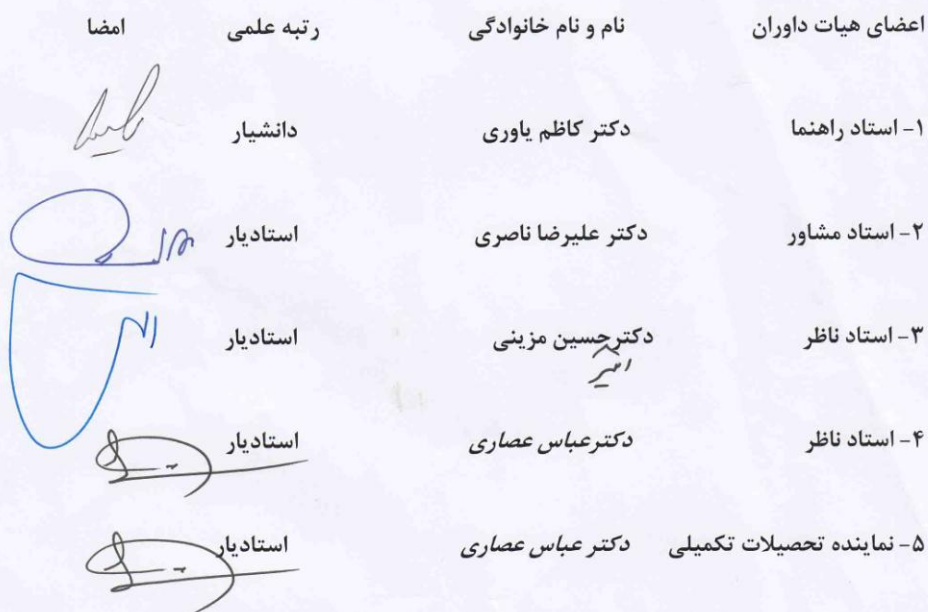 اعضای هیات داوران نام و نام خانوادگی رتبه علمی امضا
۱- استاد راهنما دکتر کاظم یاوری دانشیار
۲- استاد مشاور دکتر علیرضا ناصری استادیار
۳- استاد ناظر دکترحسین مزینی استادیار
امیر
۴- استاد ناظر دکترعباس عصاری استادیار
۵- نماینده تحصیلات تکمیلی دکتر عباس عصاری استادیار